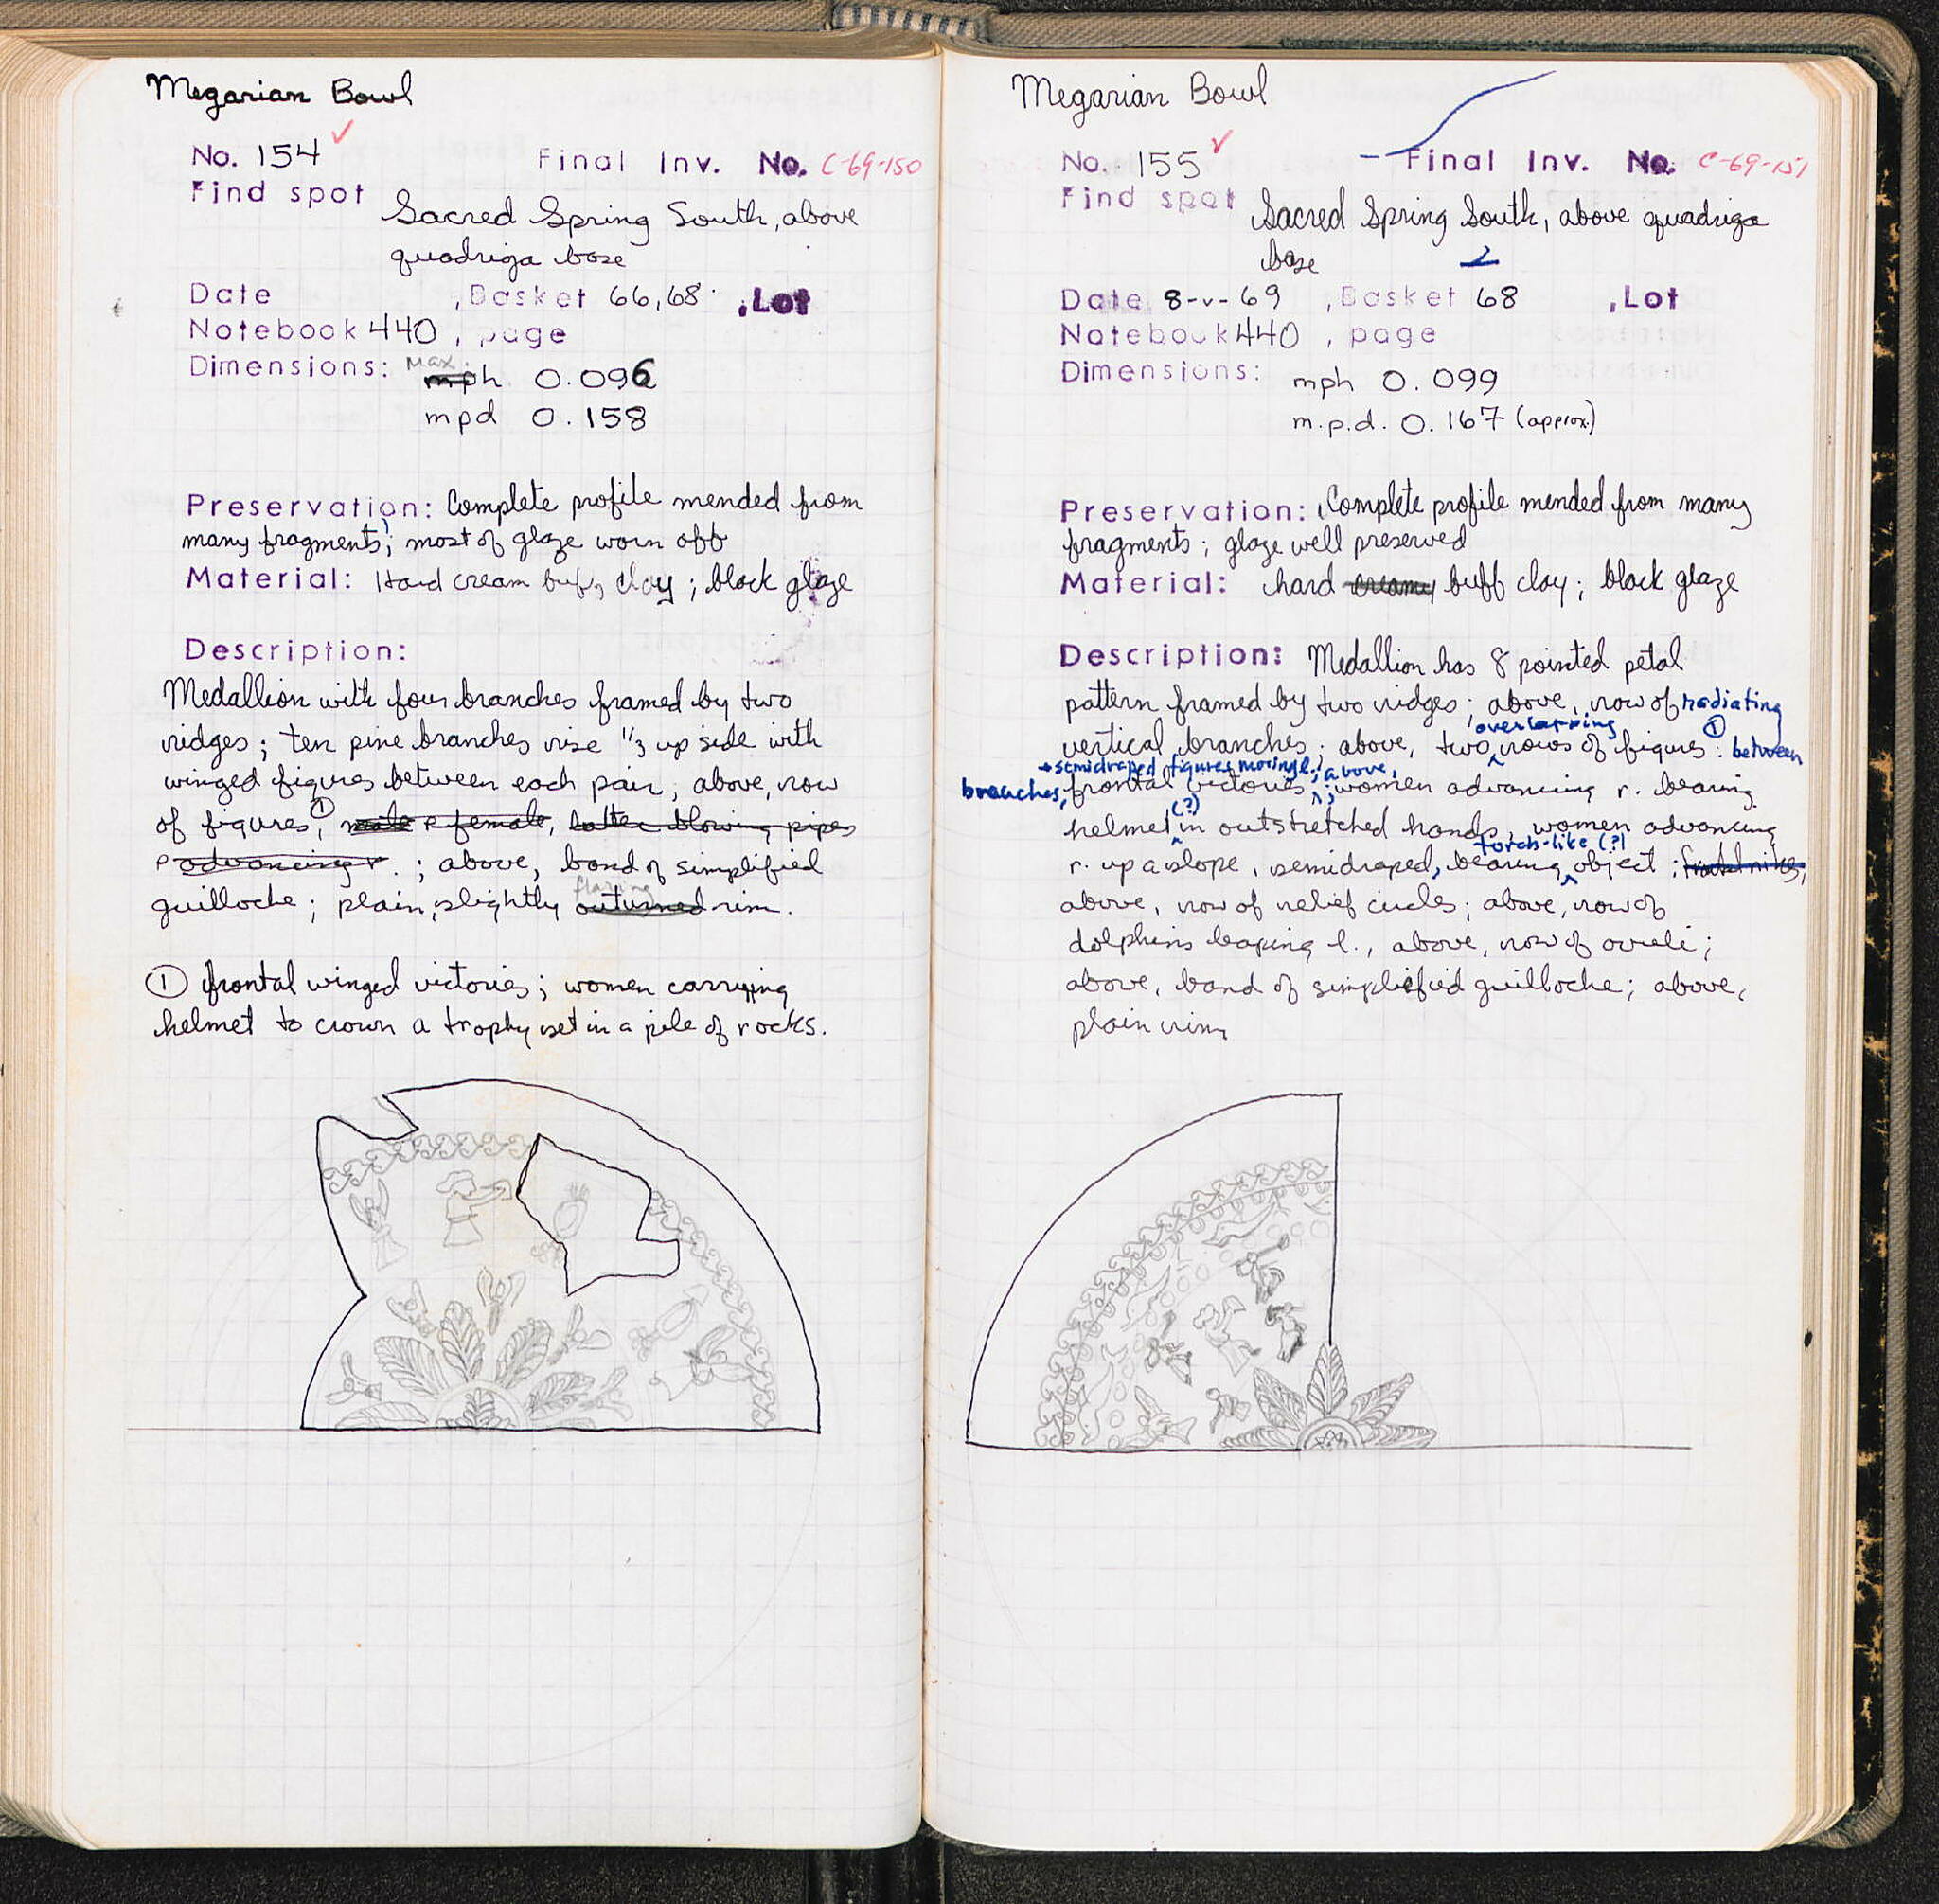 Megarian Bowl
No. 154 ✓ Final Inv. No. C-69-150
Find spot Sacred Spring South, above
quadriga base
Date , Basket 66, 68 , Lot
Notebook 440 , page
Dimensions: Max. mph 0.096
mpd 0.158
Preservation: Complete profile mended from
many fragments; most of glaze worn off
Material: Hard cream buff clay; black glaze
Description:
Medallion with four branches framed by two
ridges; ten pine branches rise 1/3 up side with
winged figures between each pair; above, row
of figures, ① male & female, latter blowing pipes
& advancing r. ; above, band of simplified
guilloche; plain, slightly outurned flaring rim.
① frontal winged victories; women carrying
helmet to crown a trophy set in a pile of rocks.
Megarian Bowl
No. 155 ✓ Final Inv. No. C-69-151
Find spot Sacred Spring South, above quadriga
base
Date 8-V-69 , Basket 68 , Lot
Notebook 440 , page
Dimensions: mph 0.099
m.p.d. 0.167 (approx.)
Preservation: Complete profile mended from many
fragments; glaze well preserved
Material: hard creamy buff clay; black glaze
Description: Medallion has 8 pointed petal
pattern framed by two ridges; above, row of radiating
vertical branches; above, two overlapping rows of figures: ① between
branches, → semidraped figures moving l.; above,
frontal victories; women advancing r. bearing
helmet (?) in outstretched hands, women advancing
r. up a slope, semidraped, bearing torch-like (?) object;
above, row of relief circles; above, row of
dolphins leaping l., above, row of ovuli;
above, band of simplified guilloche; above,
plain rim